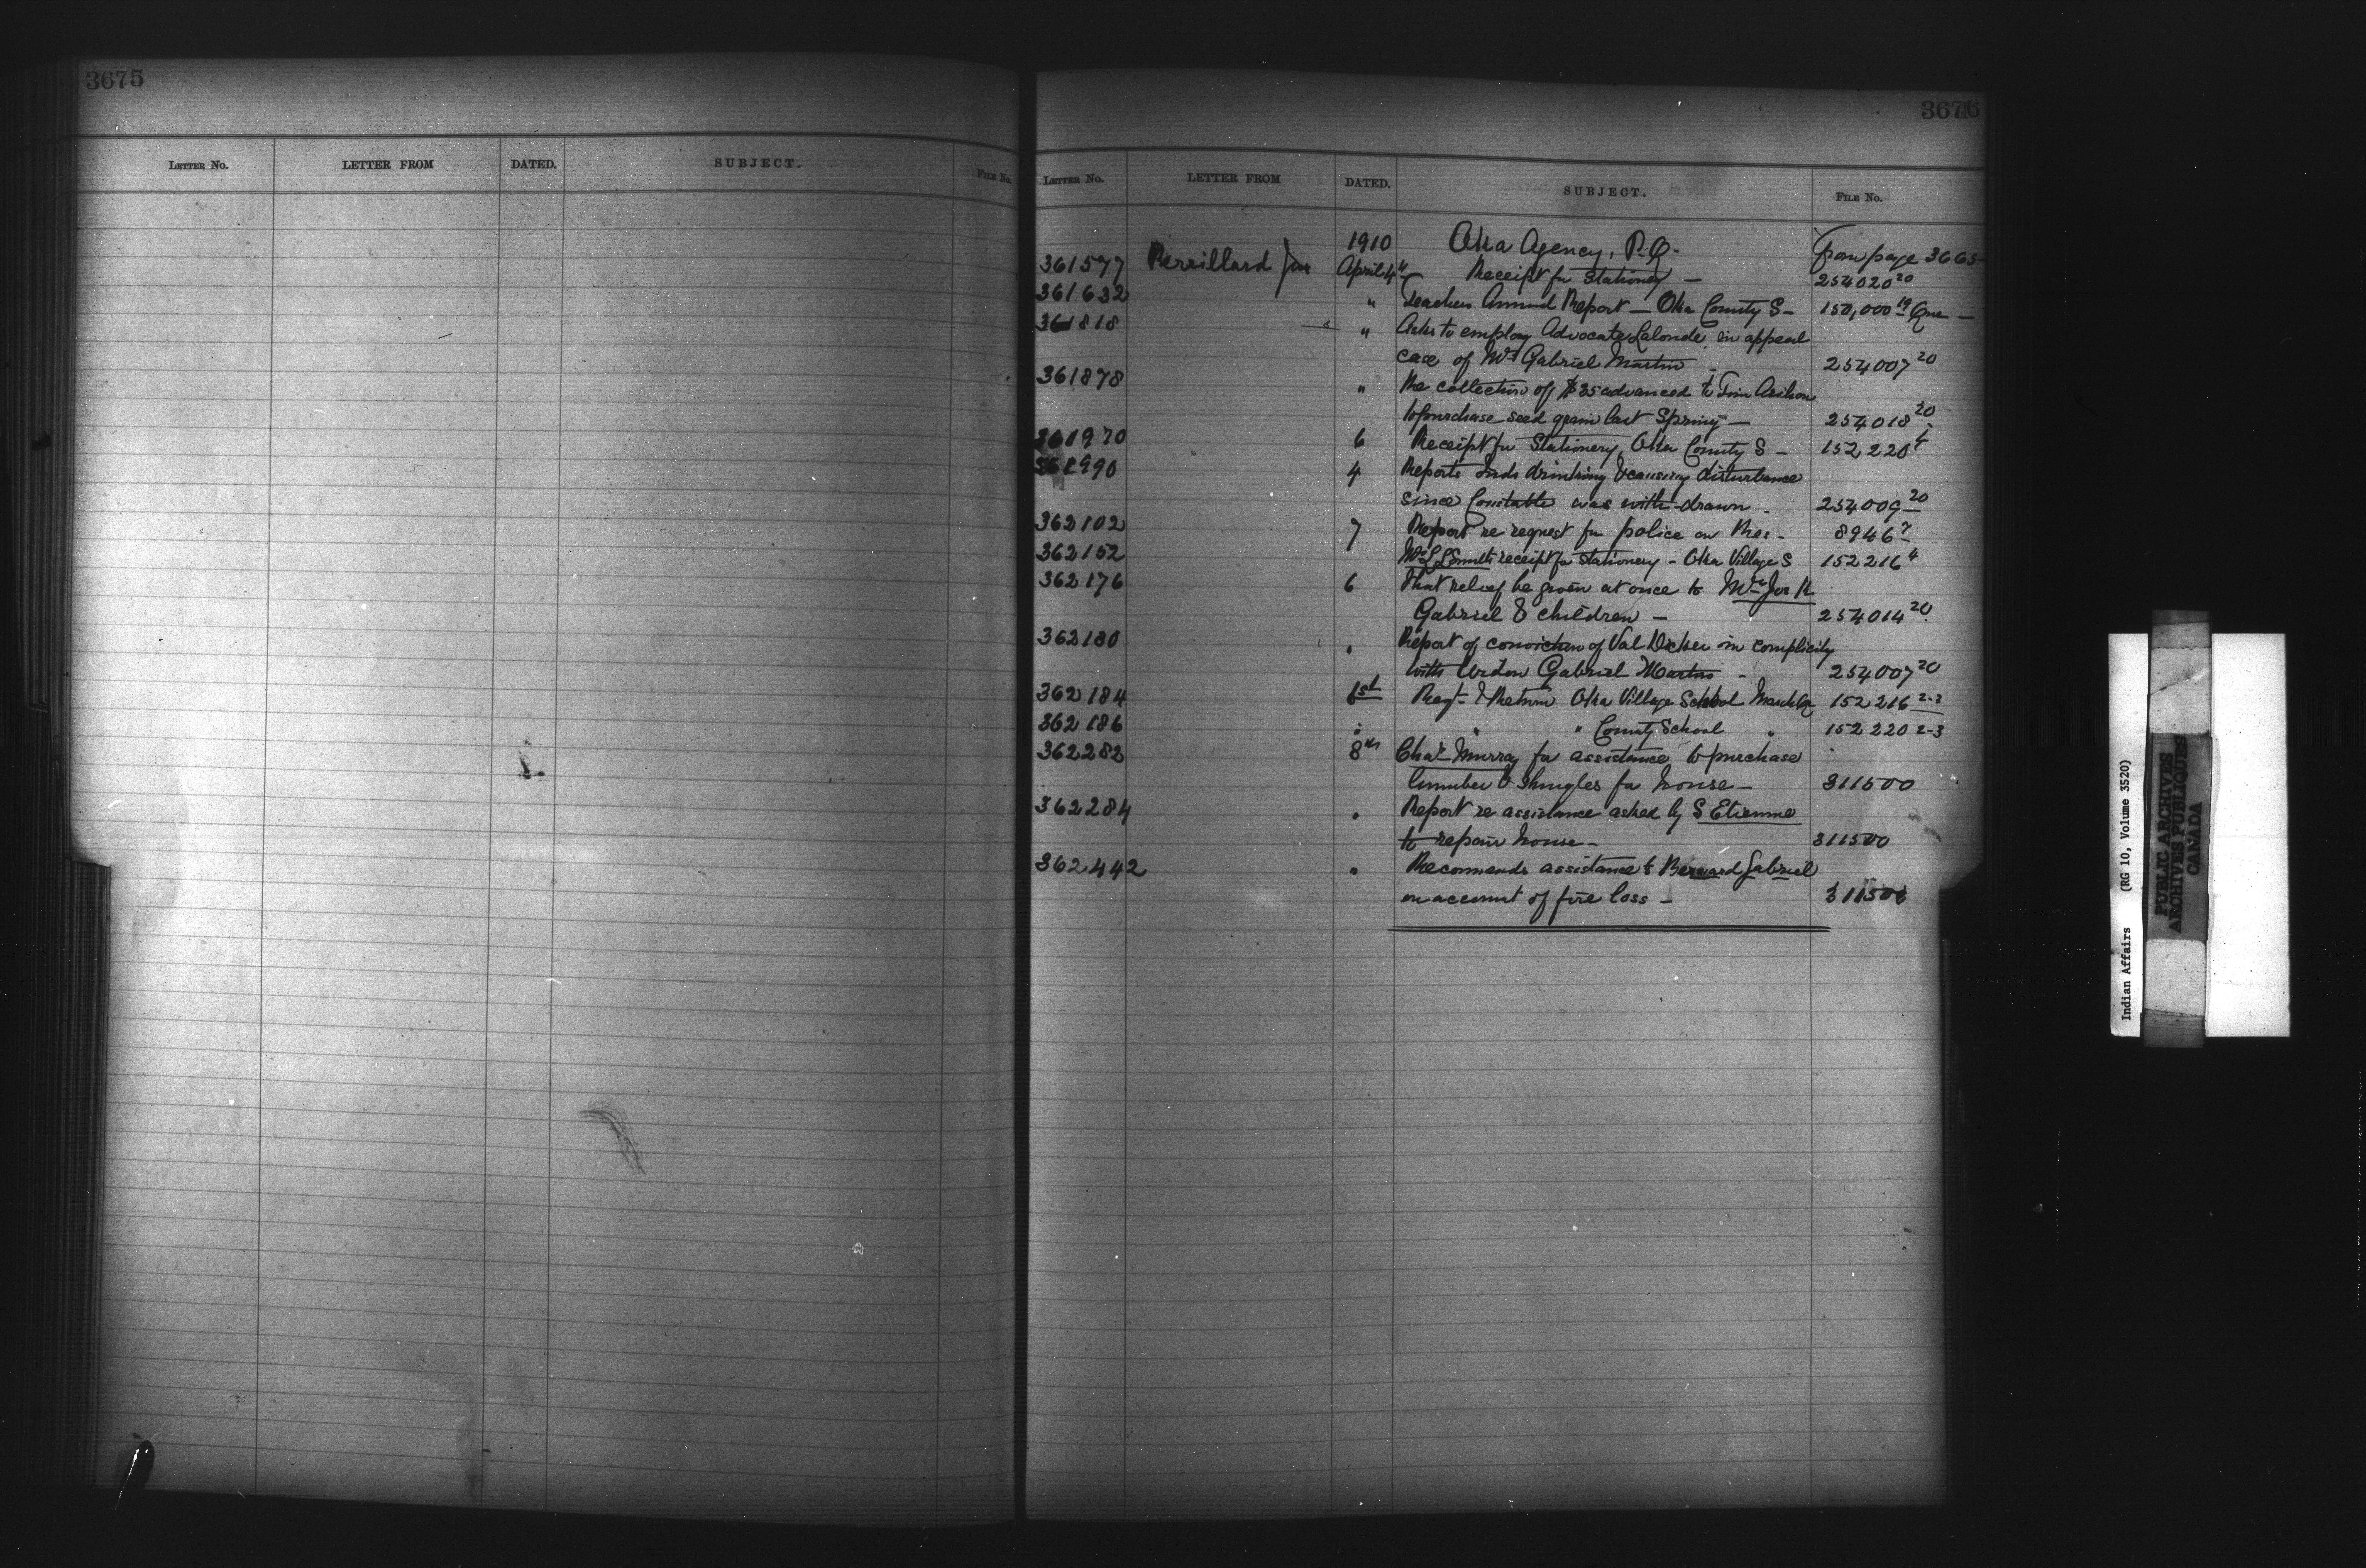 3675
LETTER NO. LETTER FROM DATED. SUBJECT. FILE NO.
3676
LETTER NO. LETTER FROM DATED. SUBJECT. FILE NO.
1910 Oka Agency, P.Q. from page 3665
361577 Perrillard Jos April 4" Receipt for Stationery — 254020 20
361632 " Teachers Annual Report — Oka County S — 150,000 19 Que —
361818 " Asks to employ Advocate Lalonde in appeal
case of Mrs Gabriel Martin - 254007 20
361878 " Re collection of $25 advanced to Tim
to purchase seed grain last Spring — 254018 20
361970 6 Receipt for Stationery, Oka County S — 152220 4
361990 4 Reports Inds drinking & causing disturbance
since Constable was with-drawn - 254009 20
362102 7 Report re request for police on Res - 8946 7
362152 receipt for Stationery - Oka Village S 152216 4
362176 6 That relief be given at once to Mrs Jos K
Gabriel & children — 254014 20
362180 " Report of conviction of Val Dicker in complicity
with Widow Gabriel Martin - 254007 20
362184 1st Reqt & Return Oka Village School March Qr 152216 2-3
362186 " " " County School " 152220 2-3
362282 8th Chas Murray for assistance to purchase
lumber & shingles for house — 311500
362284 " Report re assistance asked by S Etienne
to repair house — 311500
362442 " Recommends assistance to Bernard Gabriel
on account of fire loss — 311500
Indian Affairs (RG 10, Volume 3520)
PUBLIC ARCHIVES
ARCHIVES PUBLIQUES
CANADA